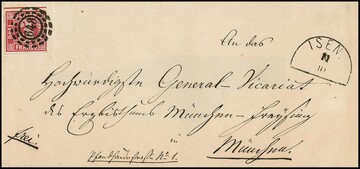 An das
ISEN.
11
10
Hochwürdigste General-Vicariat
des Erzbisthums München-Freysing
in
München.
frei.
Pfandhausstraße No 1.